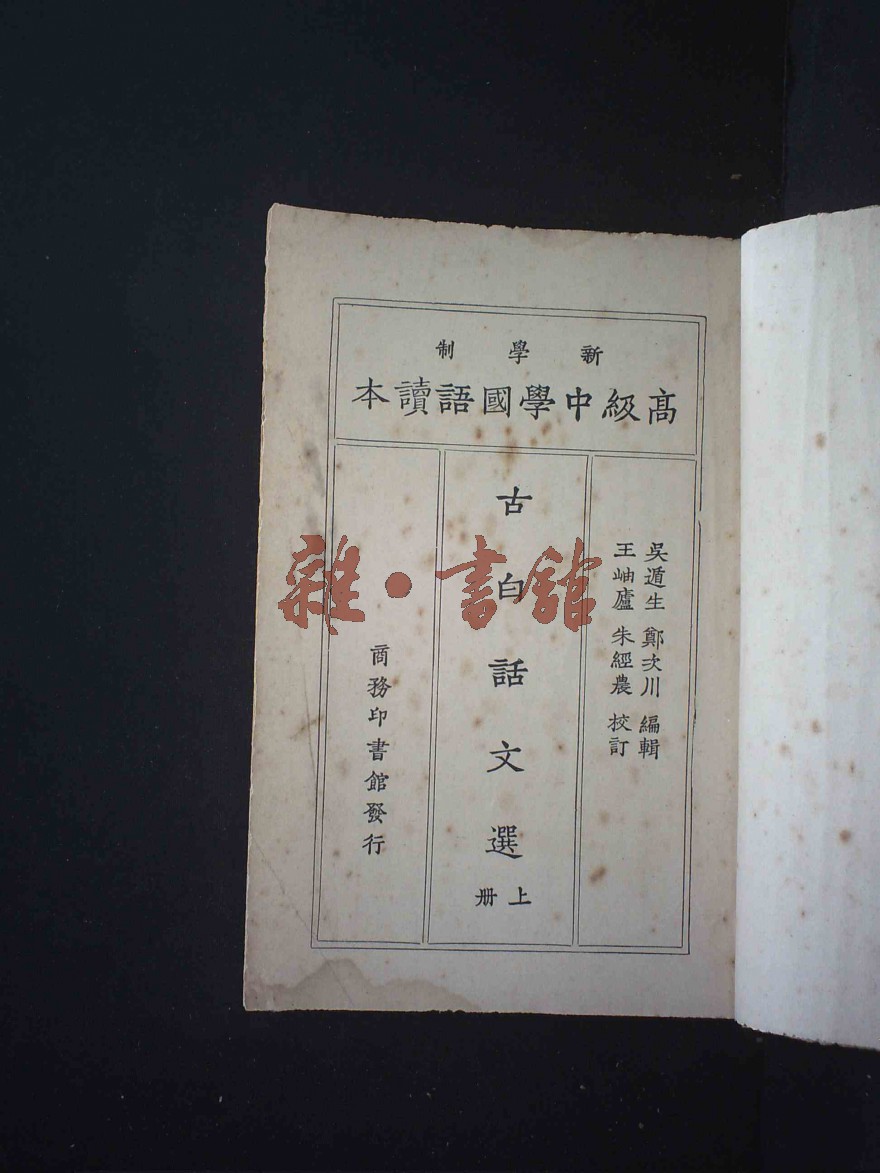 新學制
高級中學國語讀本
吳遁生 鄭次川 編輯
王岫廬 朱經農 校訂
古白話文選
上册
商務印書館發行
雜·書館